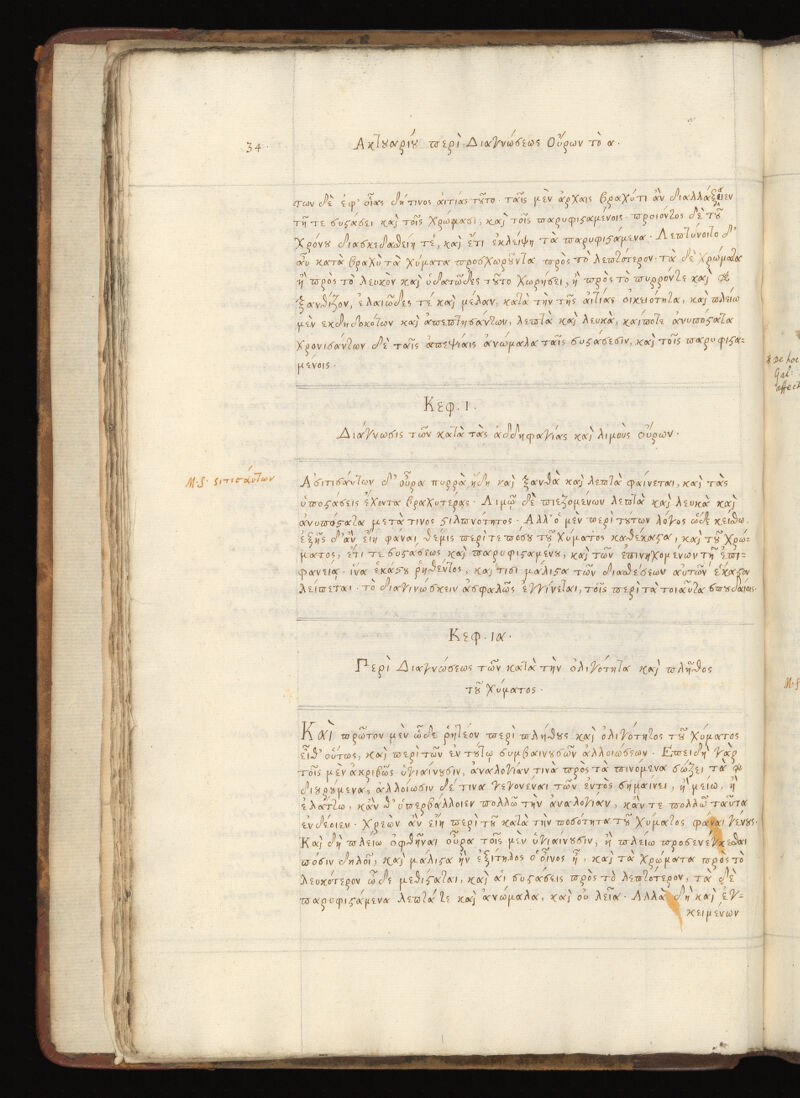 34.
Ἀκτουαρίου περὶ Διαγνώσεως Οὔρων τὸ α.
των δὲ ἐφ' οἵας δήτινος αἰτίας τοῦτο. ταῖς μὲν ἀρχαῖς βραχύτι ἂν διαλλάξειεν
τῇ τε συστάσει καὶ τοῖς χρώμασι, καὶ τοῖς παρυφισταμένοις. προϊόντος δὲ τοῦ
χρόνου διασκεδασθείη τὲ, καὶ ἔτι ἐκλείψῃ τὰ παρυφιστάμενα. Λεπτύνοιτο δ'
ἂν κατὰ βραχὺ τὰ χύματα προσχωροῦντα πρὸς τὸ λεπτότερον. τὰ δὲ χρώματα
ἢ πρὸς τὸ λευκὸν καὶ ὑδατῶδες τοῦτο χωρήσει, ἢ πρὸς τὸ πυρρόντε καὶ
ξανθίζον, ἐλαιῶδες τε καὶ μέλαν, κατὰ τὴν τῆς αἰτίας οἰκειότητα, καὶ πλείω
μὲν ἐκδηδοκότων καὶ ἀπεπτησάντων, λεπτὰ καὶ λευκὰ, καίποτε ἀνυπόστατα
χρονισάντων δὲ ταῖς ἀπεψίαις ἀνώμαλα ταῖς συστάσεσιν, καὶ τοῖς παρυφιστα-
μένοις.
Κεφ. ι.
Διάγνωσις τῶν κατὰ τὰς ἀδδηφαγίας καὶ λιμοὺς οὔρων.
M.S. σιτισάντων
Ἀσιτισάντων δ' οὖρα πυρρὰ ἤδη καὶ ξανθὰ καὶ λεπτὰ φαίνεται, καὶ τὰς
ὑποστάσεις ἔχοντα βραχυτέρας. Λιμῷ δὲ πιεζομένων λεπτὰ καὶ λευκὰ καὶ
ἀνυπόστατα μετὰ τινος στιλπνότητος. Ἀλλ' ὁ μὲν περὶ τούτων λόγος ὧδε κείσθω.
ἑξῆς δ' ἂν εἴη φάναι θέμις περὶ τε ποσοῦ τοῦ χύματος καθέκαστα, καὶ τοῦ χρώ-
ματος, ἔτι τε συστάσεως καὶ παρυφισταμένου, καὶ τῶν ἐπινηχομένων τῇ ἐπι-
φανείᾳ. ἵνα ἑκάστου ῥηθέντος, καὶ τισι μάλιστα τῶν διαθέσεων αὐτῶν ἕκαστον
λείπεται. τὸ διαγινώσκειν ἀσφαλῶς ἐγγίνεται, τοῖς περὶ τὰ τοιαῦτα σπουδαίοις.
Κεφ. ια.
Περὶ Διαγνώσεως τῶν κατὰ τὴν ὀλιγότητα καὶ πλῆθος
τοῦ χύματος.
Καὶ πρῶτον μὲν ὧδε ῥητέον περὶ πλήθους καὶ ὀλιγότητος τοῦ χύματος
εἶθ' οὕτως, καὶ περὶ τῶν ἐν τούτῳ συμβαινουσῶν ἀλλοιώσεων. Ἐπειδὴ γὰρ
τοῖς μὲν ἀκριβῶς ὑγιαίνουσιν, ἀναλογίαν τινὰ πρὸς τὰ πινόμενα σώζει τὰ
διουρούμενα, ἀλλοίωσιν δέ τινα γεγονέναι τῶν ἐντὸς σημαίνει, ἢ μείω, ἢ
ἐλάττω, κἂν δ' ὑπερβάλλοιεν πολλῷ τὴν ἀναλογίαν, κἄν τε πολλῷ ταῦτα
ἐνδέοιεν. Χρεὼν ἂν εἴη περὶ τοῦ κατὰ τὴν ποσότητα τοῦ χύματος φάναι γένους.
Καὶ δὴ πλείω ὀφθῆναι οὖρα τοῖς μὲν ὑγιαίνουσιν, ἢ πλείω προσενέγκεσθαι
πόσιν δηλοῖ, καὶ μάλιστα ἢν ἐξίτηλος ὁ οἶνος ᾖ, καὶ τὰ χρώματα πρὸς τὸ
λευκότερον ὧδε μεθίσταται, καὶ αἱ συστάσεις πρὸς τὸ λεπτότερον, τὰ δὲ
παρυφιστάμενα λεπτά τε καὶ ἀνώμαλα, καὶ οὐ λεῖα. Ἀλλὰ δὴ καὶ ἐγ-
κειμένων